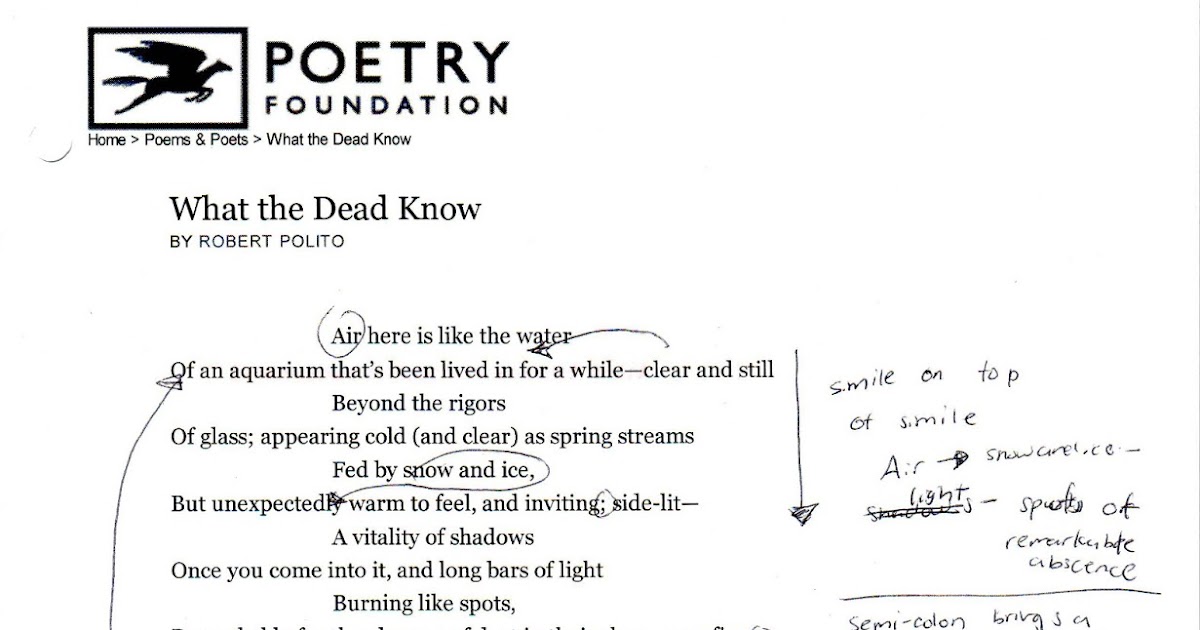 POETRY
FOUNDATION
Home > Poems & Poets > What the Dead Know
What the Dead Know
BY ROBERT POLITO
Air here is like the water
Of an aquarium that's been lived in for a while—clear and still
Beyond the rigors
Of glass; appearing cold (and clear) as spring streams
Fed by snow and ice,
But unexpectedly warm to feel, and inviting; side-lit—
A vitality of shadows
Once you come into it, and long bars of light
Burning like spots,
smile on top
of smile
Air → snow and ice
lights – of
remarkable
abscence
semi-colon brings a